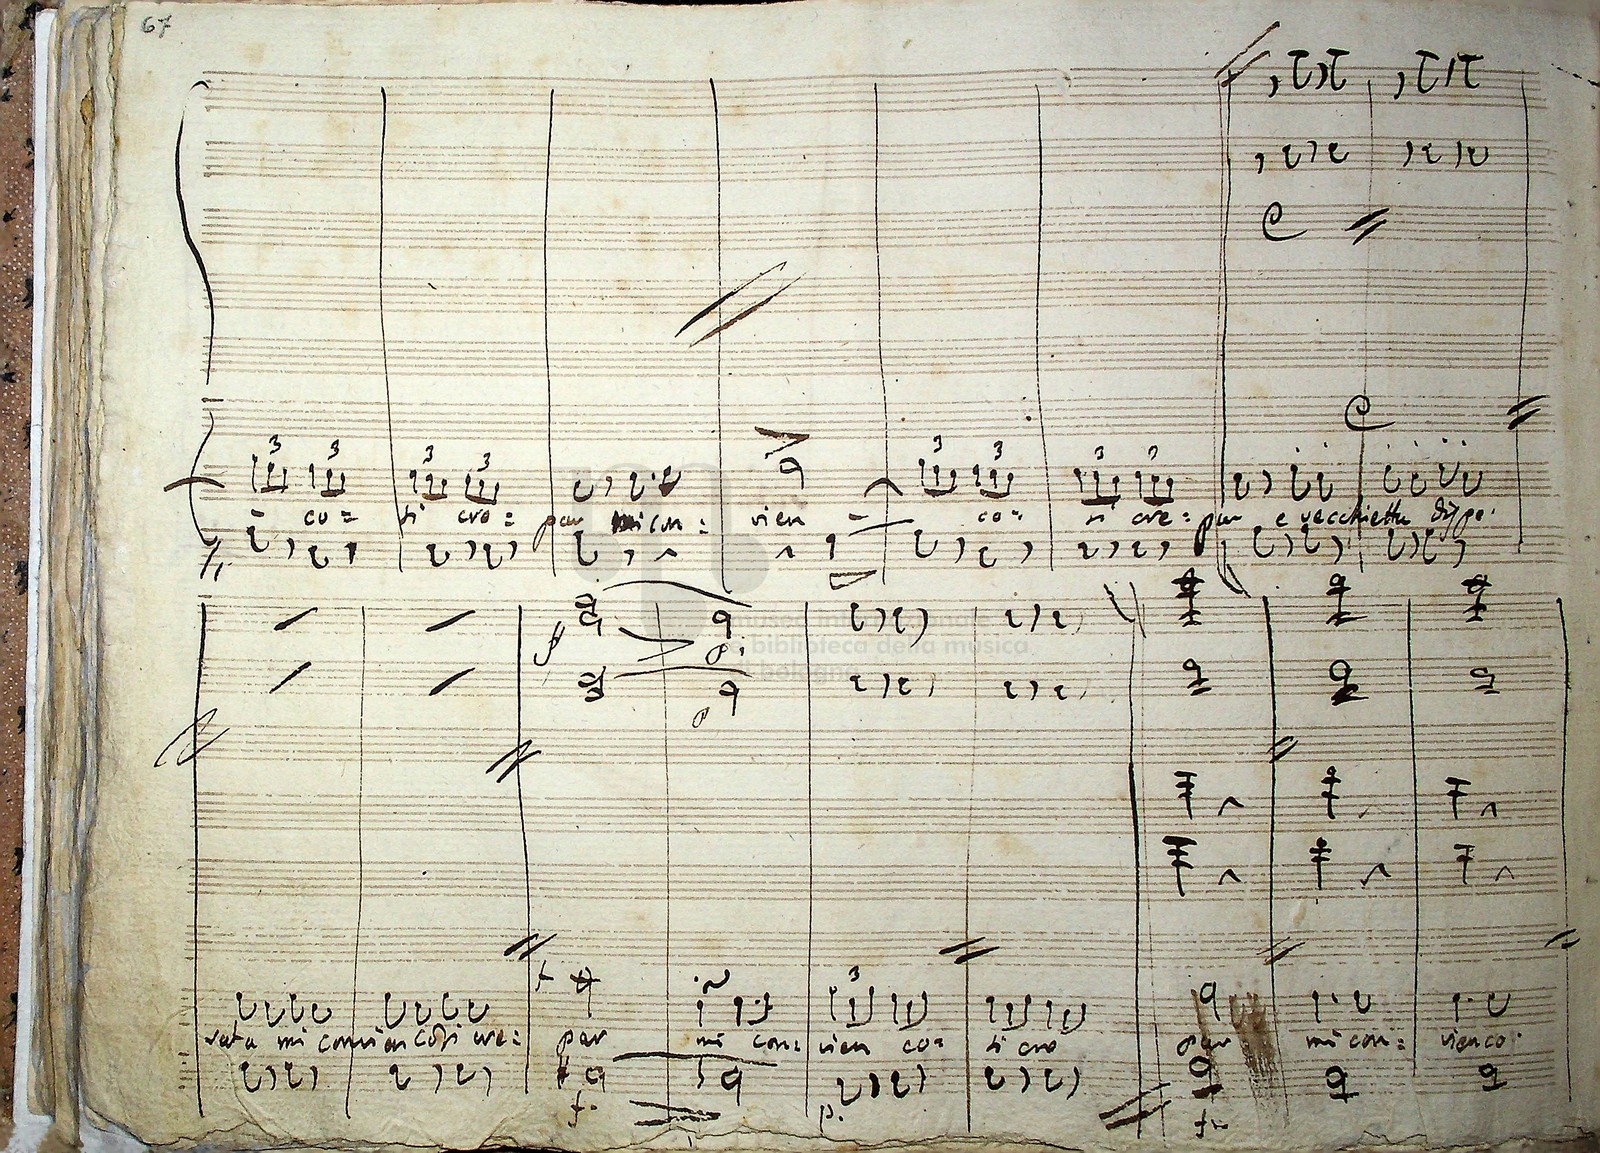 67
3 3 3 3 3 3 3
co= si cre= par mi con: vien co= si cre= par e vecchietta dispe:
museo internazionale
e biblioteca della musica
di bologna
p p:
p
rata mi convien così cre= par mi con= vien co= si cre par mi con= vien co:
3
f: p. f: